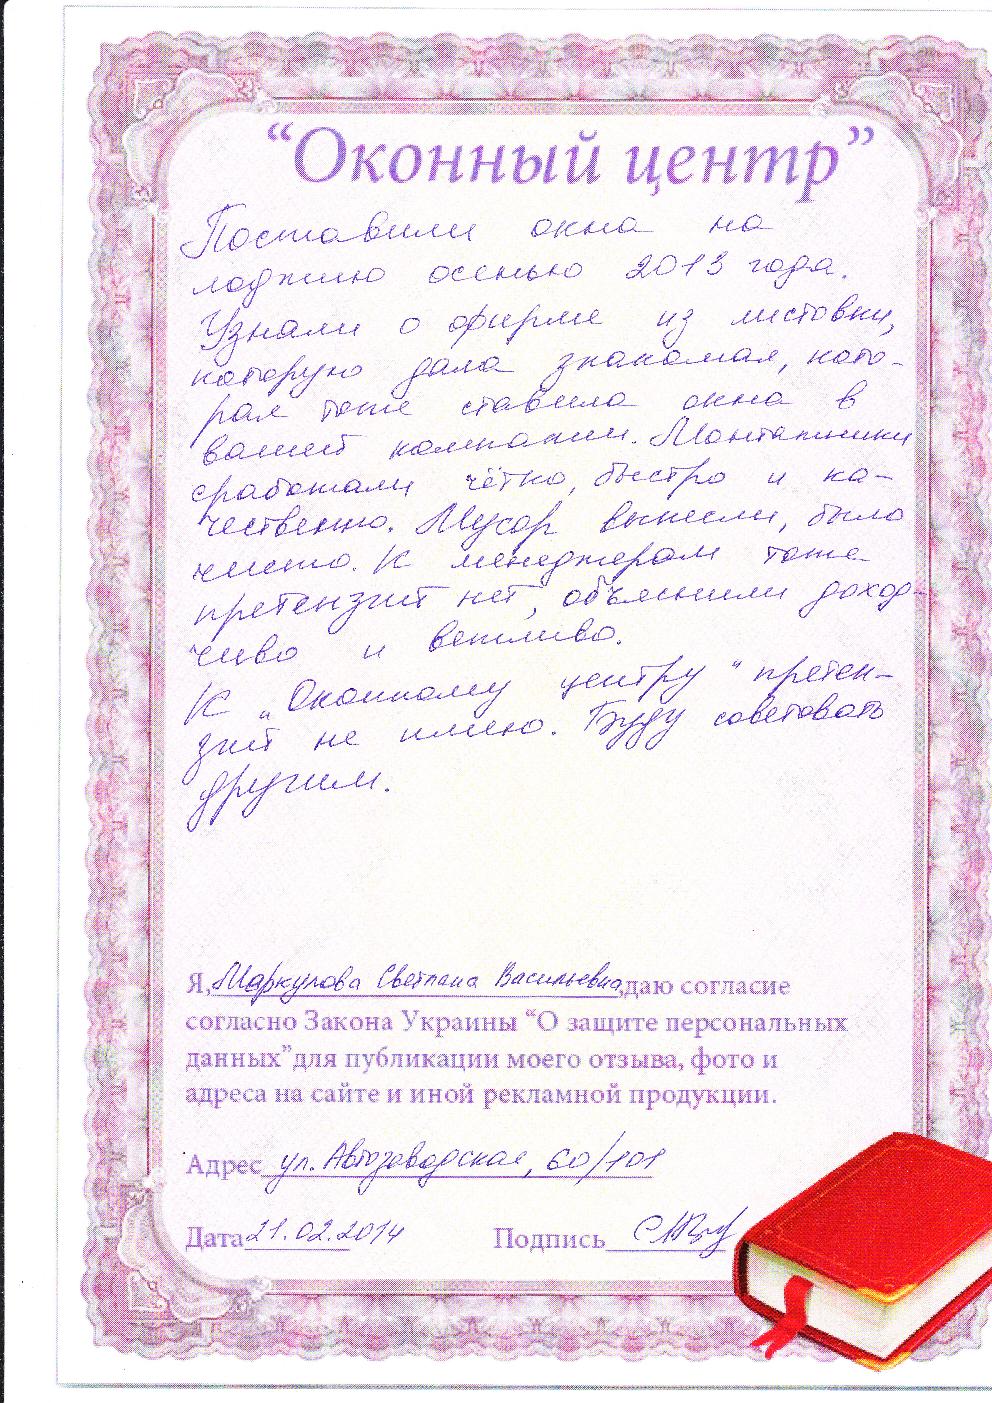 “Оконный центр”
Поставили окна на
лоджию осенью 2013 года.
Узнали о фирме из листовки,
которую дала знакомая, кото-
рая тоже ставила окна в
вашей компании. Монтажники
сработали чётко, быстро и ка-
чественно. Мусор вынесли, было
чисто. К менеджерам тоже
претензий нет, объяснили доход-
чиво и вежливо.
К „Оконному центру” претен-
зий не имею. Буду советовать
другим.
Я, Маркулова Светлана Васильевна, даю согласие
согласно Закона Украины “О защите персональных
данных” для публикации моего отзыва, фото и
адреса на сайте и иной рекламной продукции.
Адрес ул. Автозаводская, 60/101
Дата 21.02.2014 Подпись